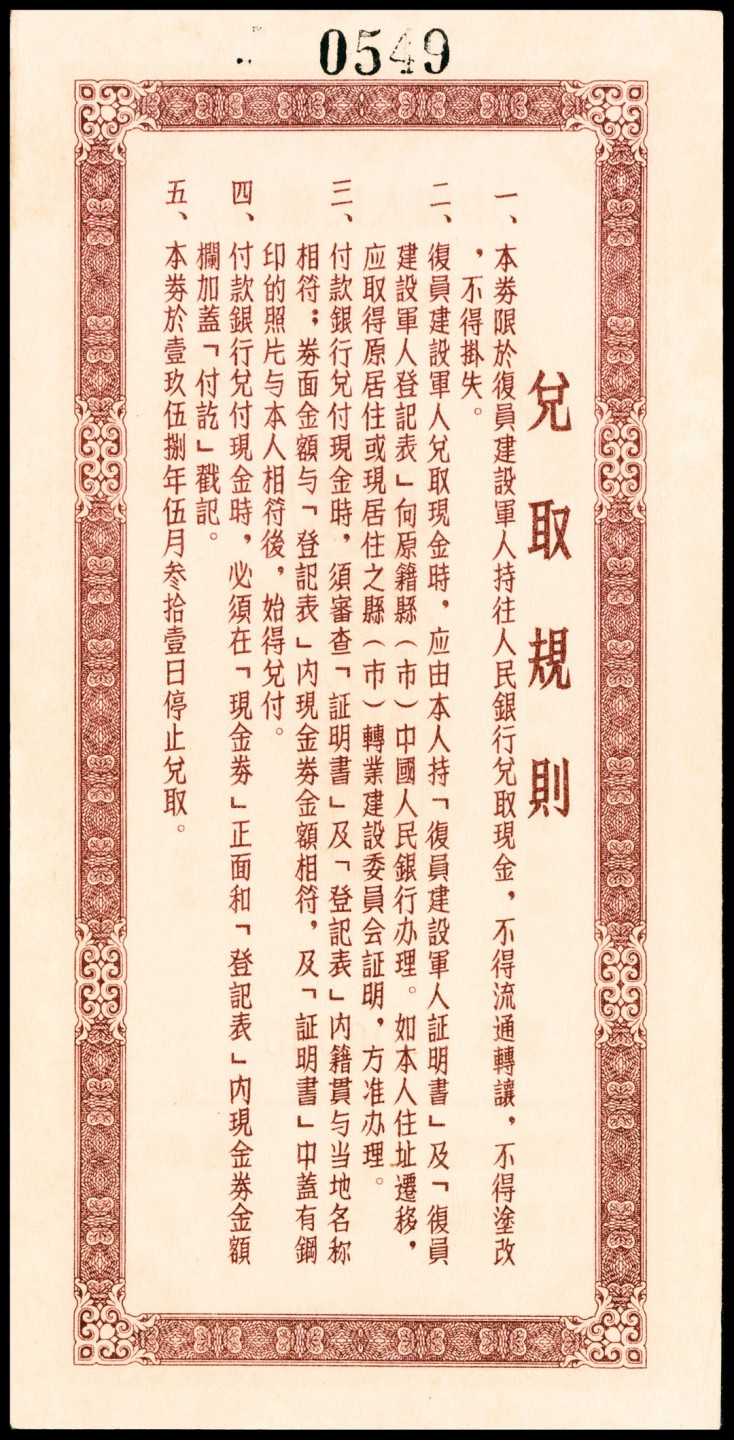 0549
兌取規則
一、本券限於復員建設軍人持往人民銀行兌取現金，不得流通轉讓，不得塗改
，不得掛失。
二、復員建設軍人兌取現金時，应由本人持「復員建設軍人証明書」及「復員
建設軍人登記表」向原籍縣（市）中國人民銀行办理。如本人住址遷移，
应取得原居住或現居住之縣（市）轉業建設委員会証明，方准办理。
三、付款銀行兌付現金時，須審查「証明書」及「登記表」內籍貫与当地名称
相符；券面金額与「登記表」內現金券金額相符，及「証明書」中蓋有鋼
印的照片与本人相符後，始得兌付。
四、付款銀行兌付現金時，必須在「現金券」正面和「登記表」內現金券金額
欄加蓋「付訖」戳記。
五、本券於壹玖伍捌年伍月叁拾壹日停止兌取。